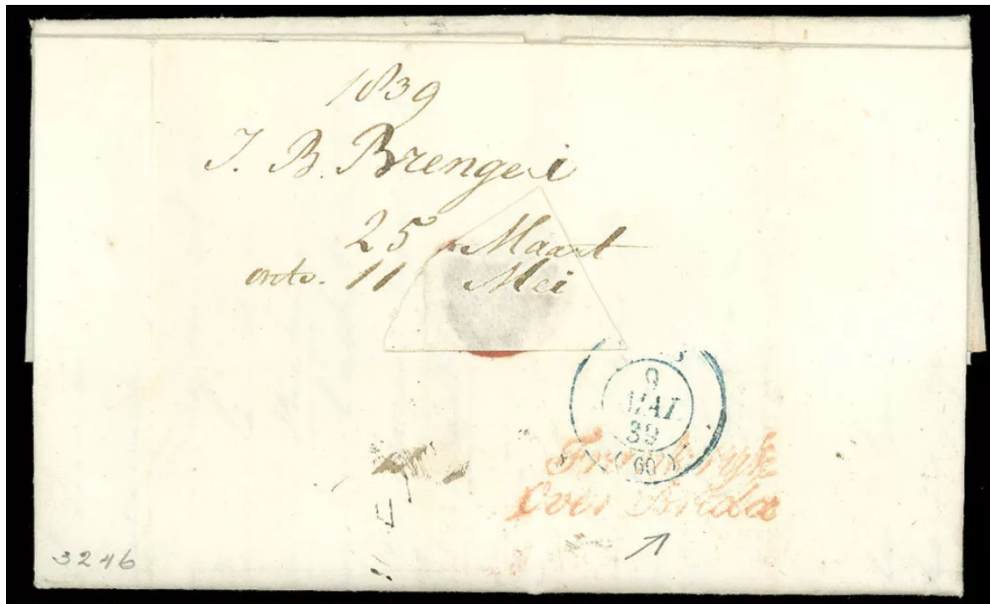 1839
J. B. Brengeri
25 Maart
11 Mei
9
MAI
39
(60)
Frankryk
Over Breda
3246